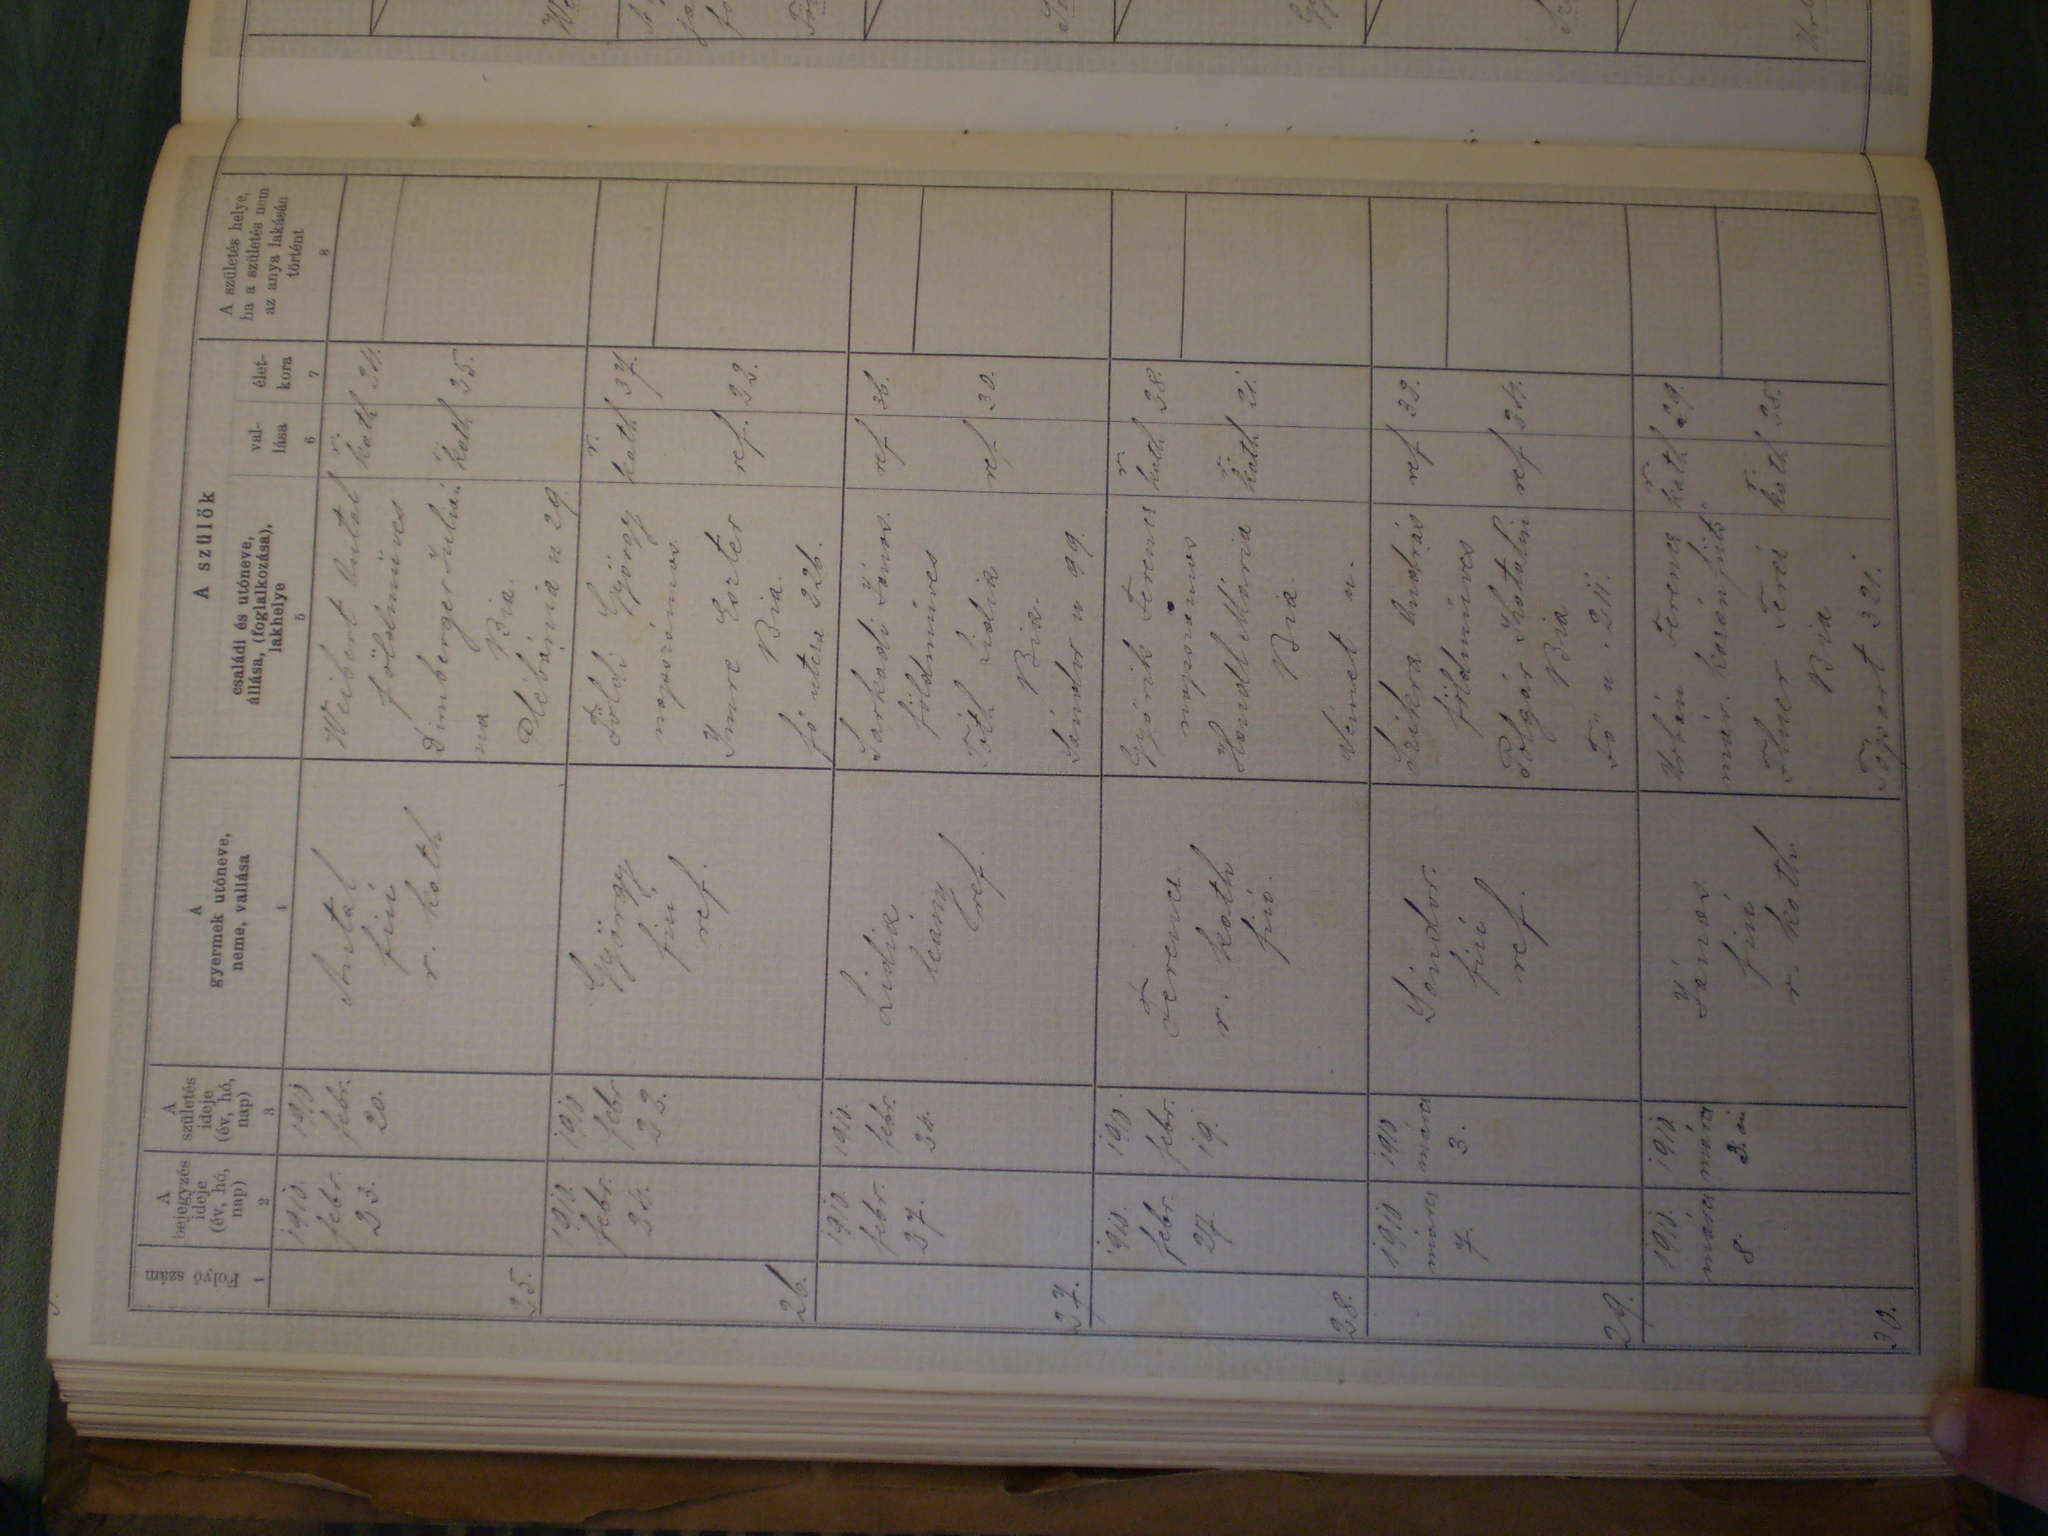 A szülők
Folyó szám
A bejegyzés ideje (év, hó, nap)
A születés ideje (év, hó, nap)
A gyermek utóneve, neme, vallása
családi és utóneve, állása, (foglalkozása), lakhelye
val-
lása
élet-
kora
A születés helye, ha a születés nem az anya lakásán történt
1
2
3
4
5
6
7
8
25.
1910.
febr.
23.
1910
febr.
20.
Antal
fiú
r. kath
Weibert Antal
földmüves
r. kath
34.
Dimberger Juliánna
r. kath
25.
Bia
Plébánia u 29.
26.
1910.
febr.
24.
1910
febr
23.
György
fiú
ref.
Földi György
napszámos
r. kath
37.
Imre Eszter
ref.
22.
Bia
fő utca 226.
27.
1910.
febr.
27.
1910.
febr.
24.
Lidia
leány
ref.
Sarkadi János.
földmüves
ref
36.
Tóth Lidia
ref
30.
Bia.
Sándor u 99.
28.
1910.
febr.
27.
1910.
febr.
19.
Ferencz
r. kath
fiú.
Ferencz
napszámos
r. kath
28.
Handl Mária
r. kath
21.
Bia.
Német u.
29.
1910
márcz
7.
1910
márcz
3.
Sándor.
fiú
ref.
Szikra András
földmüves
ref
32.
Polgár Katalin
ref
24.
Bia
Fő u. 211.
30.
1910.
márcz
8.
1910.
márcz
3.án
János
fiú
r. kath
Urbán Ferencz
máv. kazánfűtő
r. kath
29.
Teréz
r. kath
25.
Bia
321.